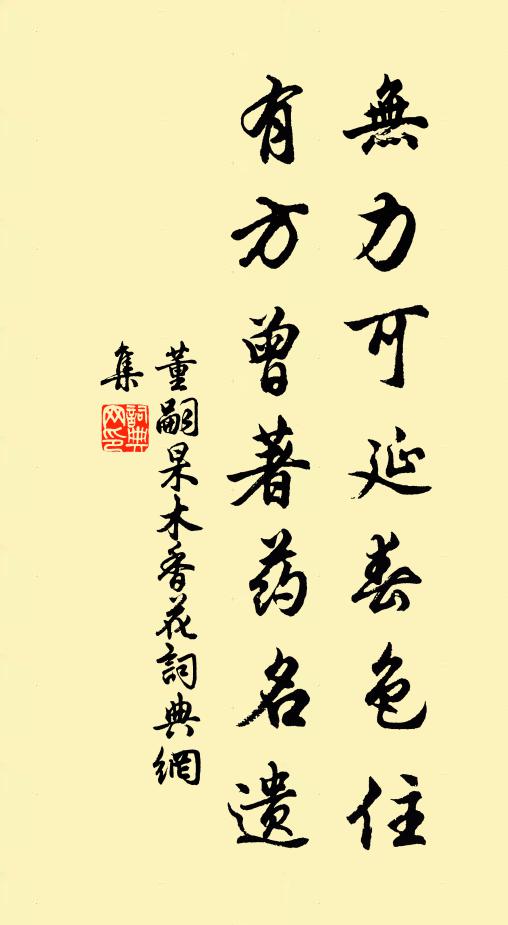 無力可延春色住
有方曾著药名遗
董嗣杲木香花詞典網
集
詞典网印